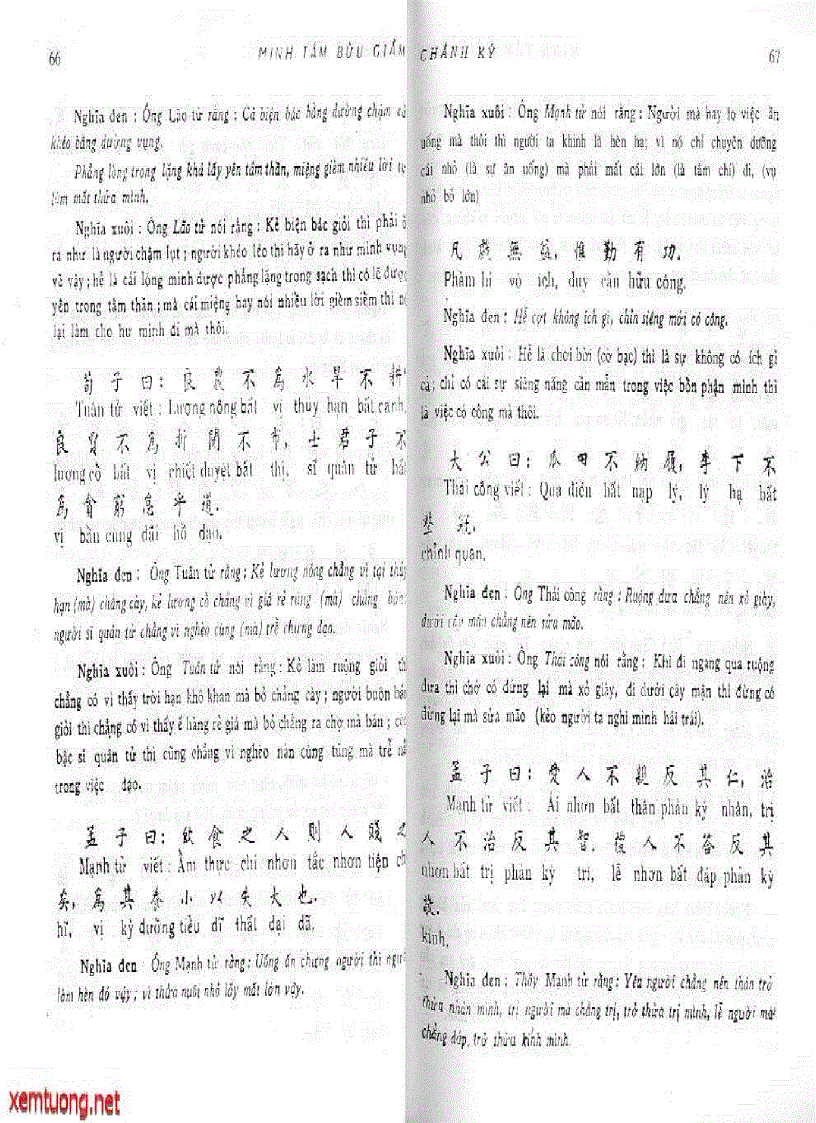 66 MINH TÂM BỬU GIÁM
Nghĩa đen : Ông Lão tử rằng : Cả biện bác bằng đường chậm
khéo bằng đường vụng.
Phẳng lòng trong lặng khá lấy yên tâm thần, miệng gièm nhiều lời
làm mất thửa mình.
Nghĩa xuôi : Ông Lão tử nói rằng : Kẻ biện bác giỏi thì phải ở
ra như là người chậm lụt ; người khéo léo thì hãy ở ra như mình vụng
về vậy ; hể là cái lòng mình được phẳng lặng trong sạch thì có lẽ được
yên trong tâm thần ; mà cái miệng hay nói nhiều lời gièm siểm thì
lại làm cho hư mình đi mà thôi.
荀 子 曰 : 良 農 不 為 水 旱 不 耕
Tuân tử viết : Lương nông bất vị thủy hạn bất canh,
良 賈 不 為 折 閱 不 市, 士 君 子 不
lương cổ bất vị chiết duyệt bất thị, sĩ quân tử bất
為 貧 窮 怠 乎 道.
vị bần cùng đãi hồ đạo.
Nghĩa đen : Ông Tuân tử rằng : Kẻ lương nông chẳng vì tại thủy
hạn (mà) chẳng cày, kẻ lương cổ chẳng vì giá rẻ rúng (mà) chẳng
người sĩ quân tử chẳng vì nghèo cùng (mà) trễ chưng đạo.
Nghĩa xuôi : Ông Tuân tử nói rằng : Kẻ làm ruộng giỏi thì
chẳng có vì thấy trời hạn khô khan mà bỏ chẳng cày ; người buôn bán
giỏi thì chẳng có vì thấy ế hàng rẻ giá mà bỏ chẳng ra chợ mà bán ;
bậc sĩ quân tử thì cũng chẳng vì nghèo nàn cùng túng mà trễ nải
trong việc đạo.
孟 子 曰 : 飲 食 之 人 則 人 賤 之
Mạnh tử viết : Ẩm thực chi nhơn tắc nhơn tiện chi
矣, 為 其 養 小 以 失 大 也.
hĩ, vị kỳ dưỡng tiểu dĩ thất đại dã.
Nghĩa đen Ông Mạnh tử rằng : Uống ăn chưng người thì người
làm hèn đó vậy ; vì thửa nuôi nhỏ lấy mất lớn vậy.
CHÁNH KỶ 67
Nghĩa xuôi : Ông Mạnh tử nói rằng : Người mà hay lo việc ăn
uống mà thôi thì người ta khinh là hèn hạ ; vì nó chỉ chuyên dưỡng
cái nhỏ (là sự ăn uống) mà phải mất cái lớn (là tâm chí) đi, (vụ
nhỏ bỏ lớn)
凡 戲 無 益, 惟 勤 有 功.
Phàm hí vô ích, duy cần hữu công.
Nghĩa đen : Hễ cợt không ích gì, chỉn siêng mới có công.
Nghĩa xuôi : Hễ là chơi bời (cờ bạc) thì là sự không có ích gì
cả ; chỉ có cái sự siêng năng cần mẫn trong việc bổn phận mình thì
là việc có công mà thôi.
太 公 曰 : 瓜 田 不 納 履, 李 下 不
Thái công viết : Qua điền bất nạp lý, lý hạ bất
整 冠.
chỉnh quan.
Nghĩa đen : Ông Thái công rằng : Ruộng dưa chẳng nên xỏ giày,
dưới cây mận chẳng nên sửa mão.
Nghĩa xuôi : Ông Thái công nói rằng : Khi đi ngang qua ruộng
dưa thì chớ có đứng lại mà xỏ giày, đi dưới cây mận thì đừng có
đứng lại mà sửa mão (kẻo người ta nghi mình hái trái).
孟 子 曰 : 愛 人 不 親 反 其 仁, 治
Mạnh tử viết : Ái nhơn bất thân phản kỳ nhân, trị
人 不 治 反 其 智, 禮 人 不 答 反 其
nhơn bất trị phản kỳ trí, lễ nhơn bất đáp phản kỳ
敬.
kính.
Nghĩa đen : Thầy Mạnh tử rằng : Yêu người chẳng nên thân trở
thửa nhân mình, trị người mà chẳng trị, trở thửa trí mình, lễ người mà
chẳng đáp, trở thửa kính mình.
xemtuong.net